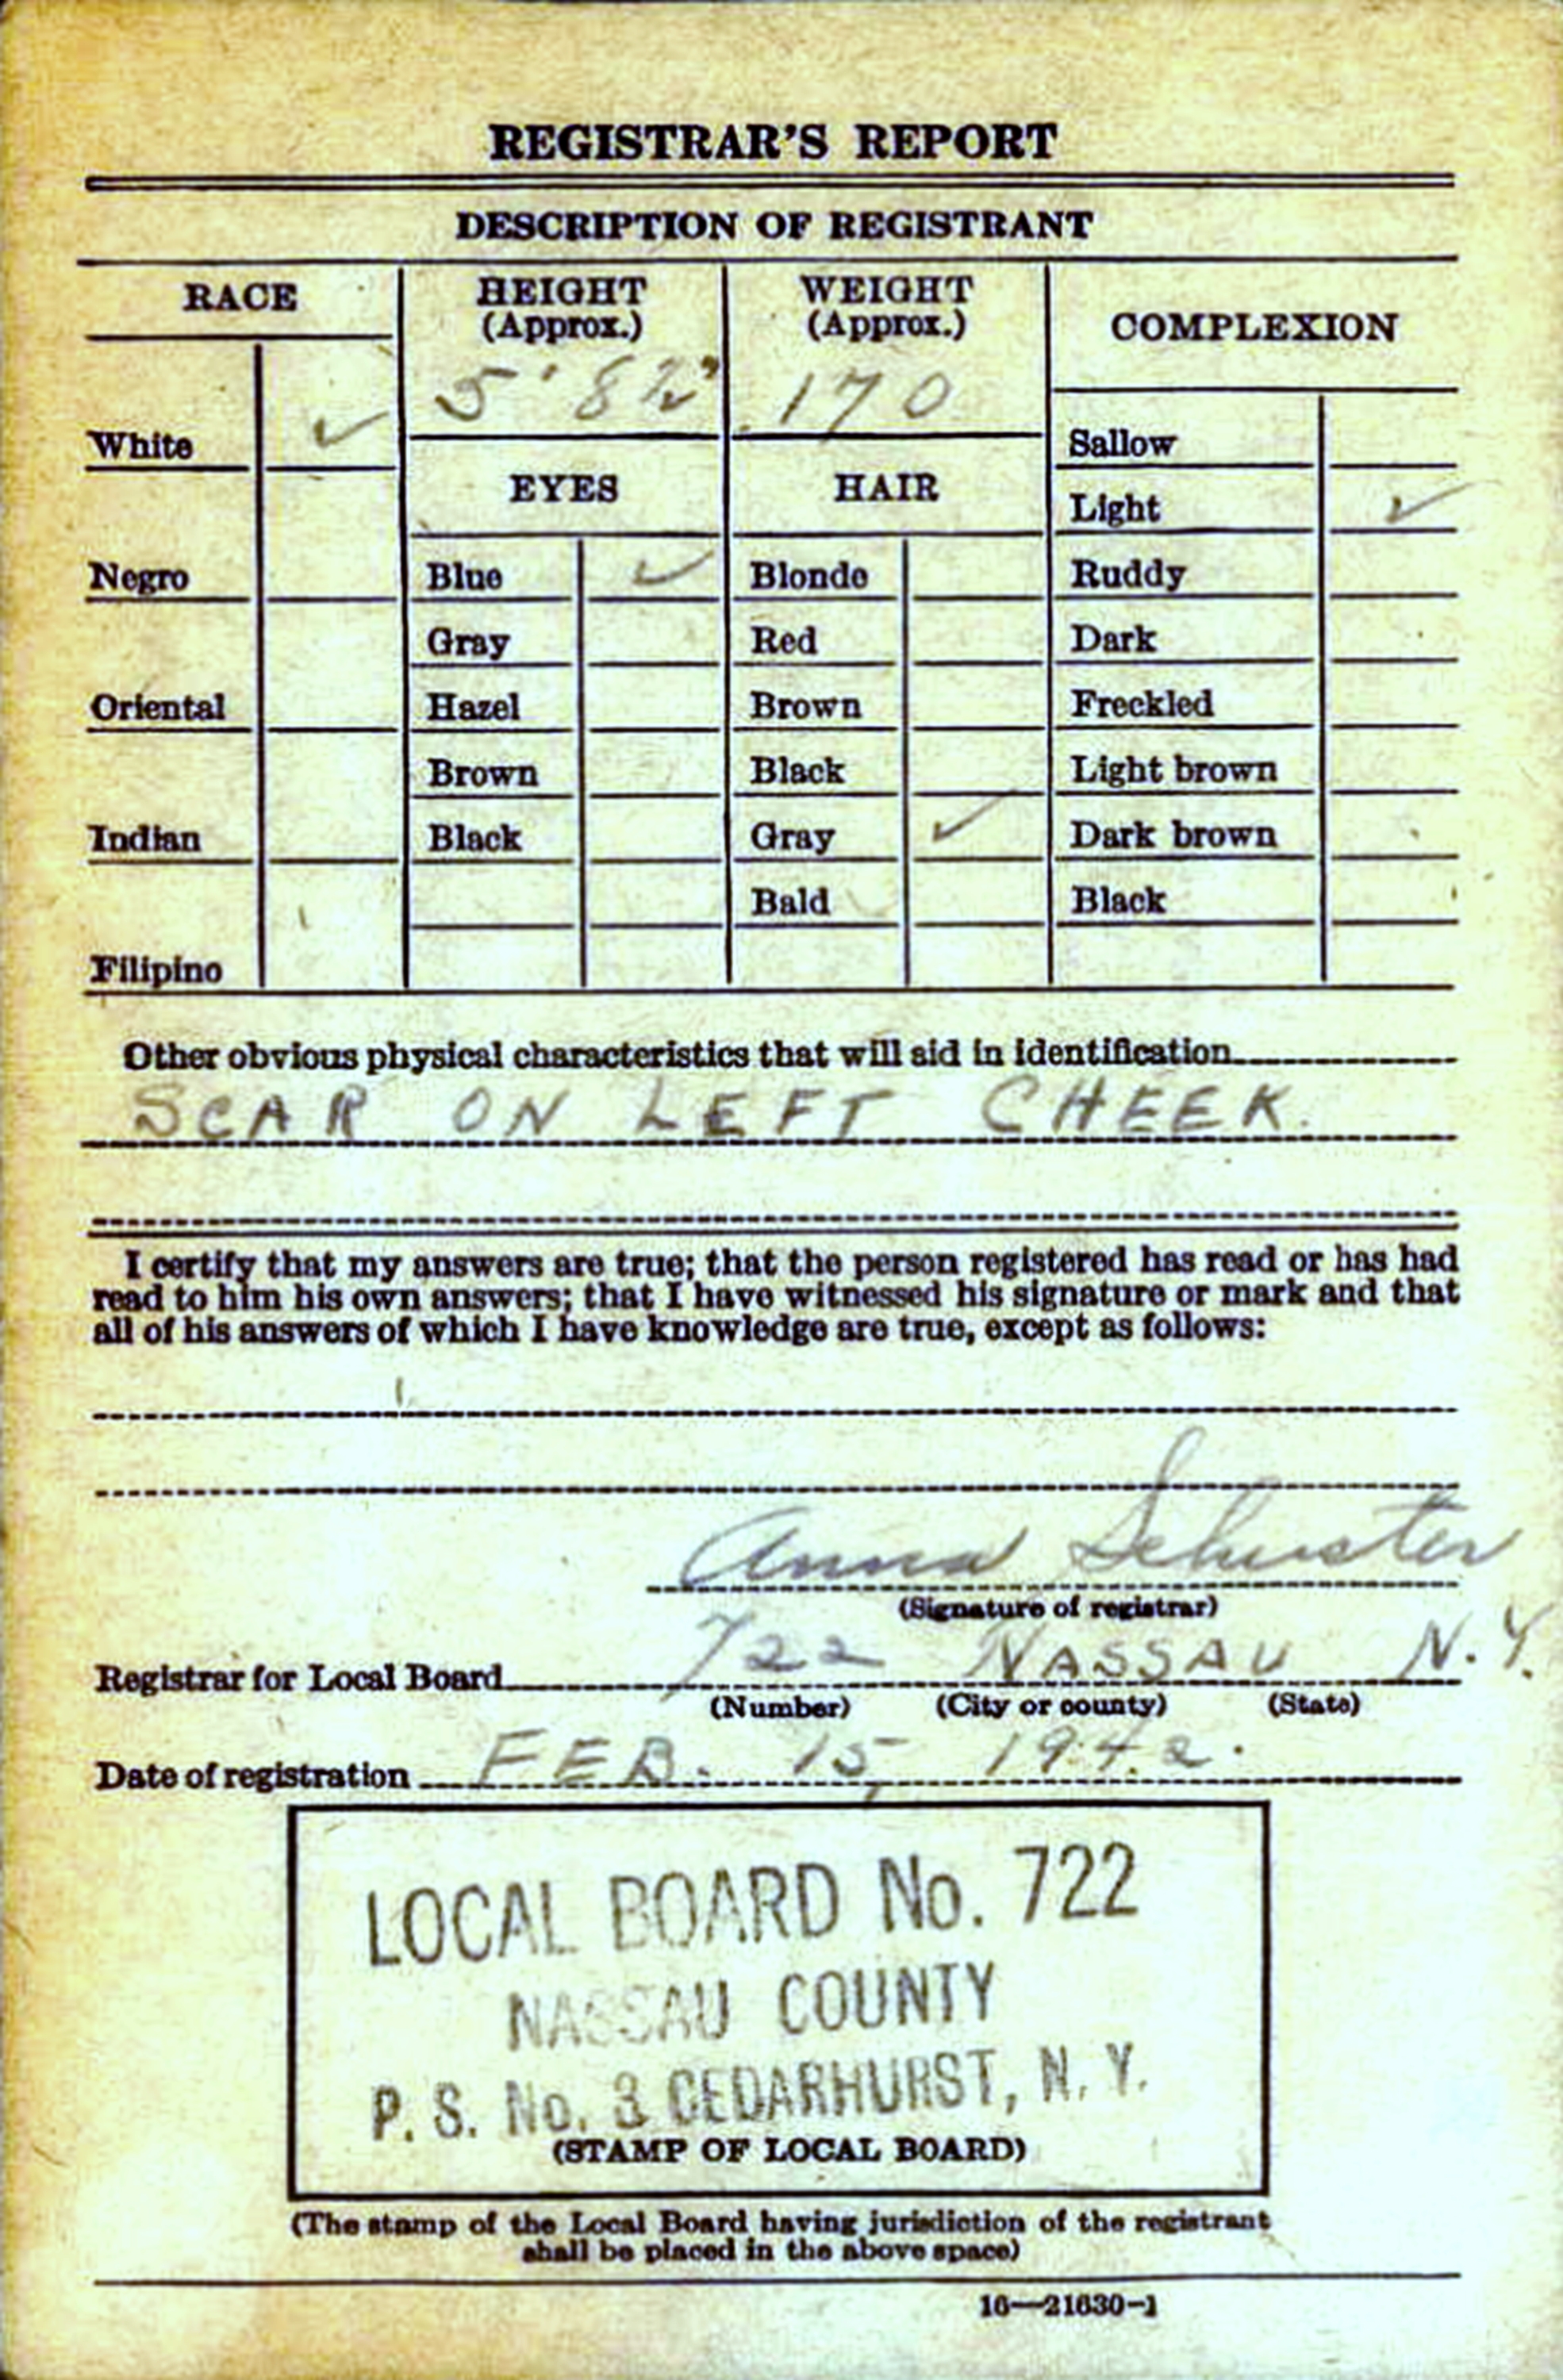 REGISTRAR'S REPORT
DESCRIPTION OF REGISTRANT
RACE
HEIGHT
(Approx.)
WEIGHT
(Approx.)
COMPLEXION
5' 8½" 170
White ✓
Sallow
EYES HAIR
Light ✓
Negro
Blue ✓
Blonde
Ruddy
Gray
Red
Dark
Oriental
Hazel
Brown
Freckled
Brown
Black
Light brown
Indian
Black
Gray ✓
Dark brown
Bald
Black
Filipino
Other obvious physical characteristics that will aid in identification
SCAR ON LEFT CHEEK.
I certify that my answers are true; that the person registered has read or has had
read to him his own answers; that I have witnessed his signature or mark and that
all of his answers of which I have knowledge are true, except as follows:
Anna Schuster
(Signature of registrar)
Registrar for Local Board 722 NASSAU N.Y.
(Number) (City or county) (State)
Date of registration FEB. 15, 1942.
LOCAL BOARD No. 722
NASSAU COUNTY
P. S. No. 3 CEDARHURST, N. Y.
(STAMP OF LOCAL BOARD)
(The stamp of the Local Board having jurisdiction of the registrant
shall be placed in the above space)
16—21630-1